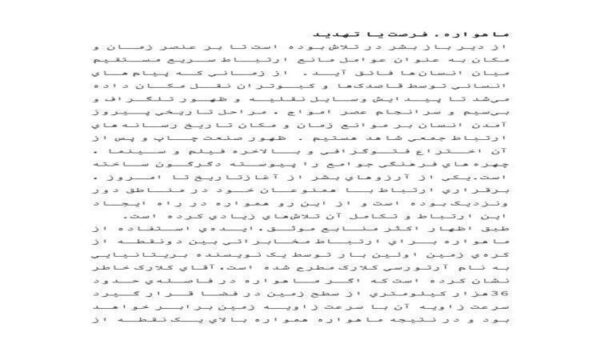 ماهواره، فرصت یا تهدید
از دیر باز بشر در تلاش بوده است تا بر عنصر زمان و
مکان به عنوان عوامل مانع ارتباط سریع مستقیم
میان انسان‌ها فائق آید. از زمانی که پیام‌های
انسانی توسط قاصدک‌ها و کبوتران نقل مکان داده
می‌شد تا پیدایش وسایل نقلیه و ظهور تلگراف و
بی‌سیم و سرانجام عصر امواج ، مراحل تاریخی پیروز
آمدن انسان بر موانع زمان و مکان تاریخ رسانه‌های
ارتباط جمعی شاهد هستیم . ظهور صنعت چاپ و پس از
آن اختراع فتوگرافی و بالاخره فیلم و سینما ،
چهره‌های فرهنگی جوامع را پیوسته دگرگون ساخته
است.یکی از آرزوهای بشر از آغازتاریخ تا امروز ،
برقراری ارتباط با همنوعان خود در مناطق دور
ونزدیک بوده است و از این رو همواره در راه ایجاد
این ارتباط و تکامل آن تلاش‌های زیادی کرده است.
طبق اظهار اکثر منابع موثق، ایده‌ی استفاده از
ماهواره برای ارتباط مخابراتی بین دونقطه از
کره‌ی زمین اولین بار توسط یک نویسنده بریتانیایی
به نام آرتورسی کلارک مطرح شده است، آقای کلارک خاطر
نشان کرده است که اگر ماهواره در فاصله‌ی حدود
36هزار کیلومتری از سطح زمین در فضا قرار گیرد
سرعت زاویه آن با سرعت زاویه زمین برابر خواهد
بود و در نتیجه ماهواره همواره بالای یک نقطه از